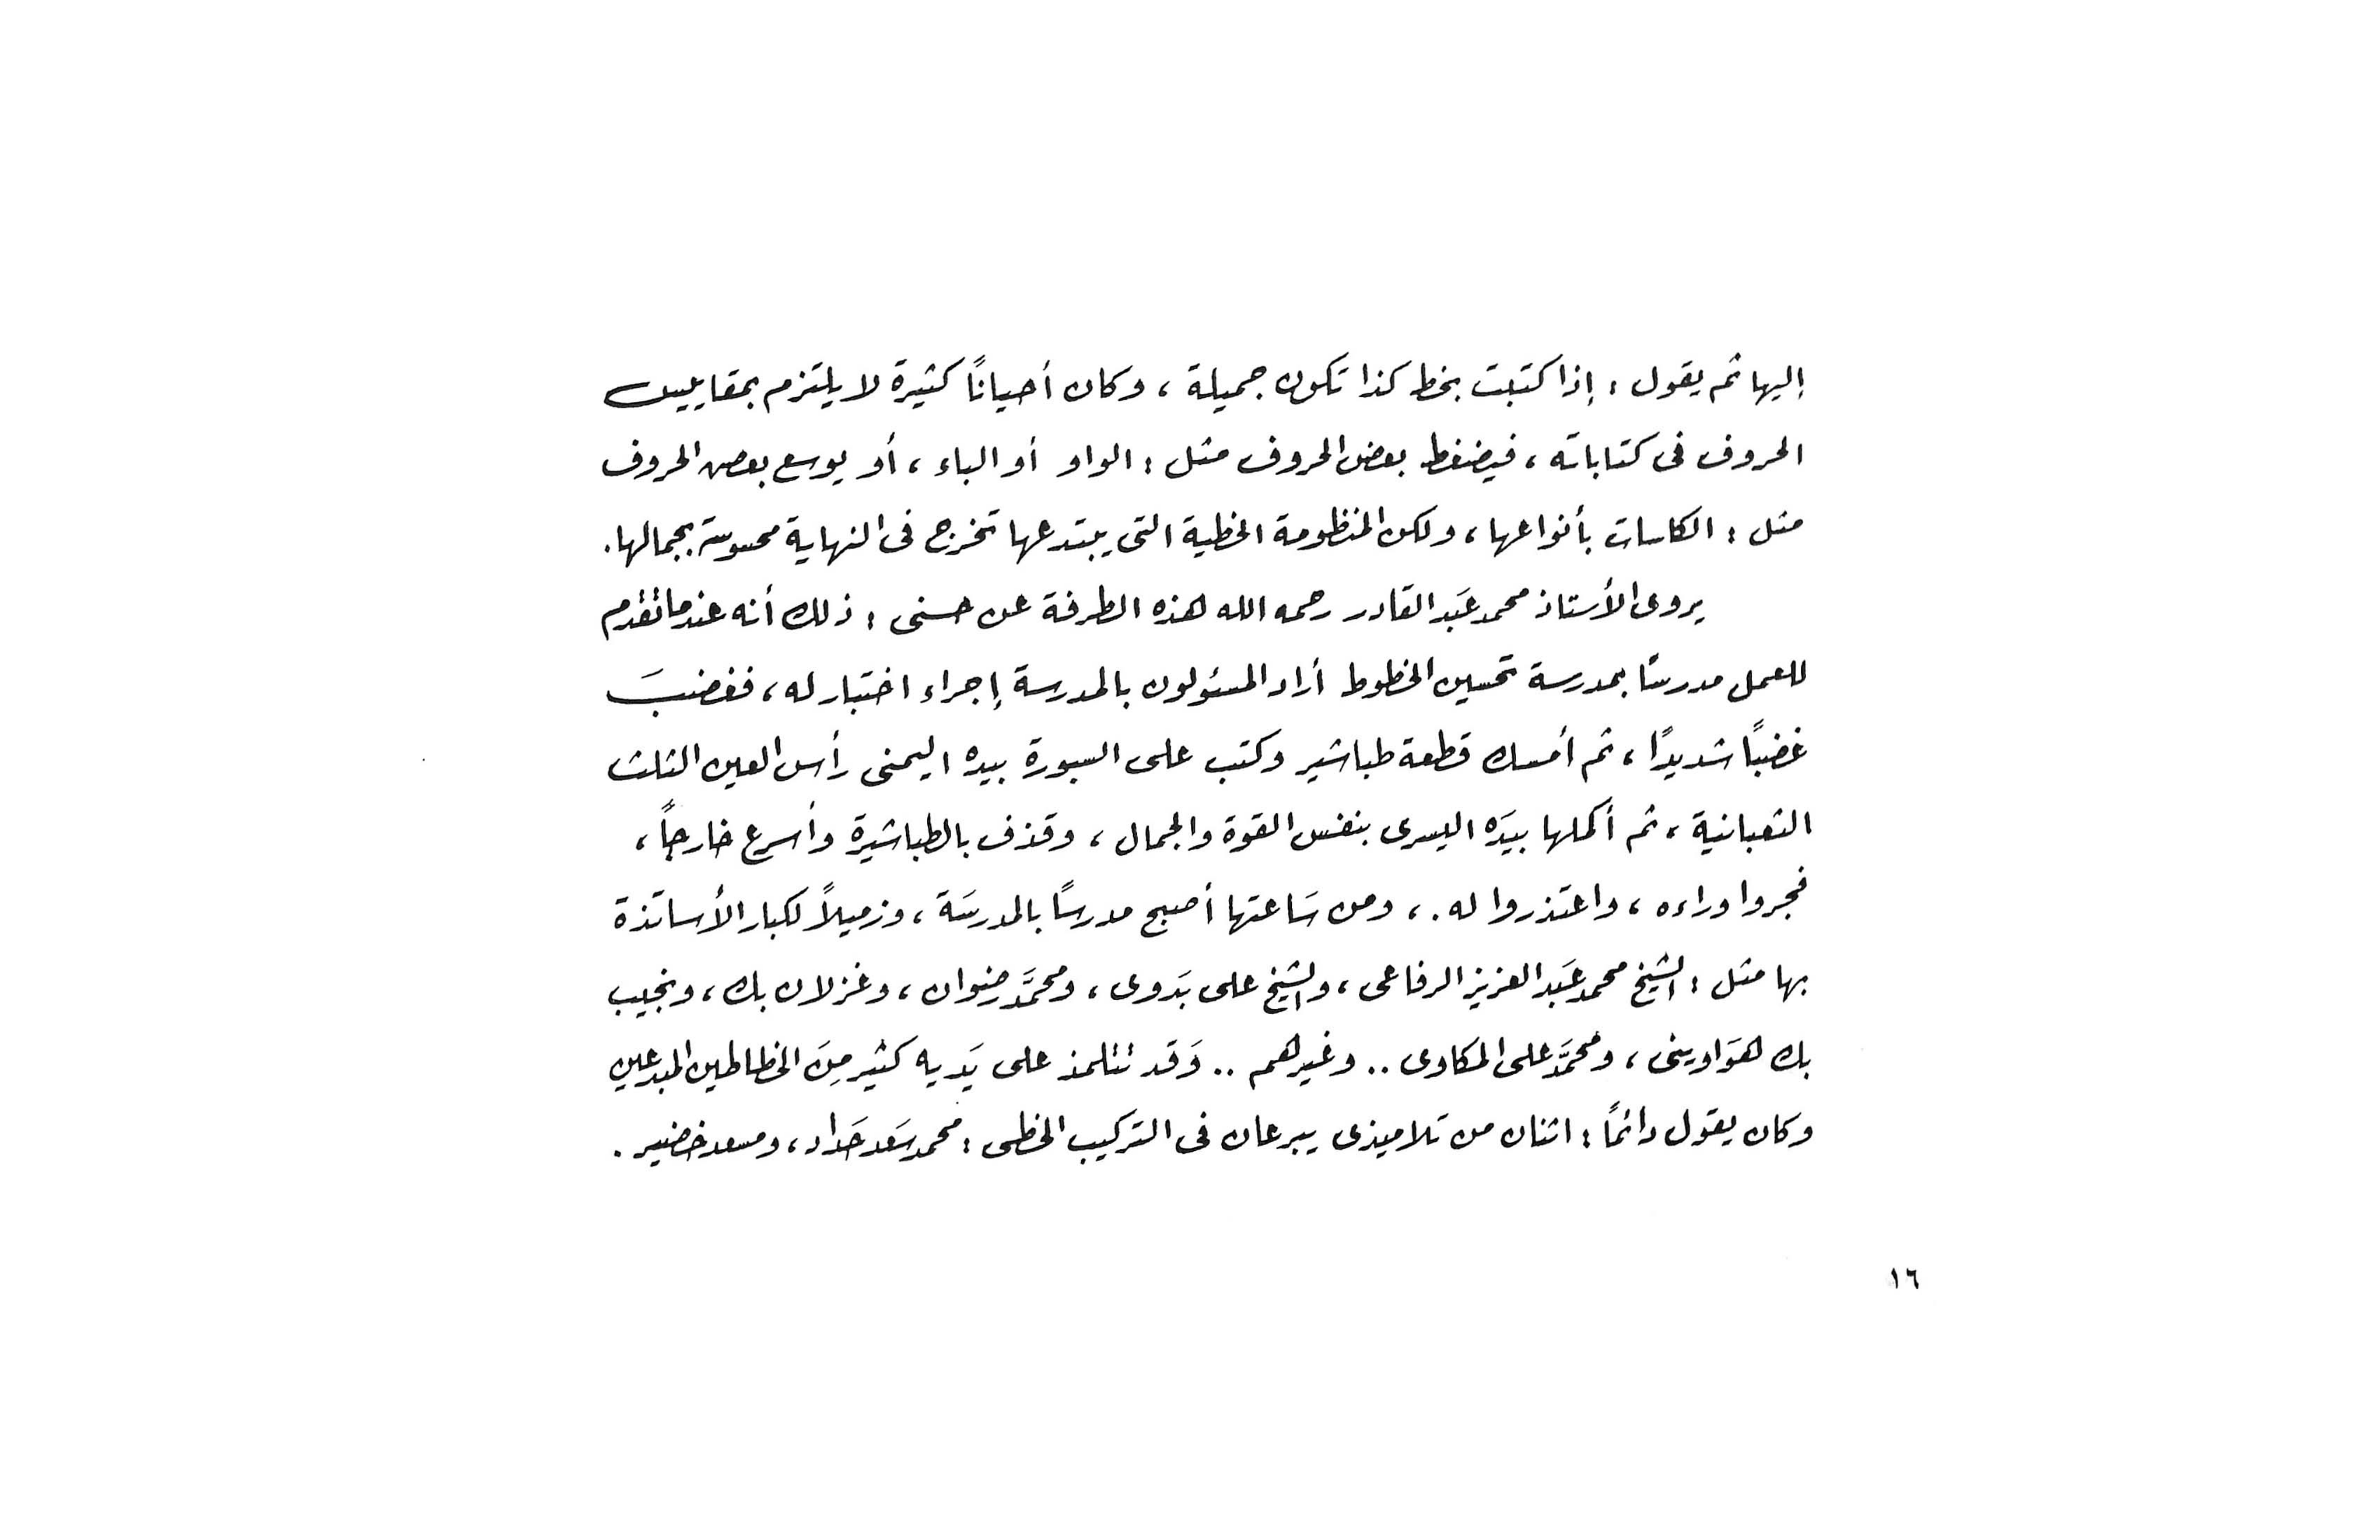 إليها ثم يقول : إذا كتبت بخط كذا تكون جميلة ، وكان أحيانًا كثيرة لا يلتزم بمقاييس
الحروف فى كتاباته ، فيضغط بعض الحروف مثل : الواو أو الباء ، أو يوسع بعض الحروف
مثل : الكاسات بأنواعها ، ولكن المنظومة الخطية التى يبتدعها تخرج فى النهاية محسوسة بجمالها .
يروى الأستاذ محمد عَبد القادر رحمه الله هذه الطرفة عن حسنى : ذلك أنه عندما تقدم
للعمل مدرسًا بمدرسة تحسين الخطوط أراد المسئولون بالمدرسة إجراء اختبار له ، فغضبَ
غضبًا شديدًا ، ثم أمسك قطعة طباشير وكتب على السبورة بيده اليمنى رأس العين الثلث
الثعبانية ، ثم أكملها بيَده اليسرى بنفس القوة والجمال ، وقذف بالطباشيرة وأسرع خارجًا ،
فجروا وراءه ، واعتذروا له . ، ومن سَاعتها أصبح مدرسًا بالمدرسَة ، وزميلاً لكبار الأساتذة
بها مثل : الشيخ محمد عَبد العزيز الرفاعى ، والشيخ على بَدوى ، ومحمَّد رضوان ، وغزلان بك ، ونجيب
بك هوَاوينى ، ومحمَّد على المكاوى .. وغيرهم .. وَقد تتلمذ على يَديه كثير مِنَ الخطاطين المبدعين
وكان يقول دائمًا : اثنان من تلاميذى يبرعان فى التركيب الخطى : محمد سَعد حَداد ، ومسعد خضير .
١٦